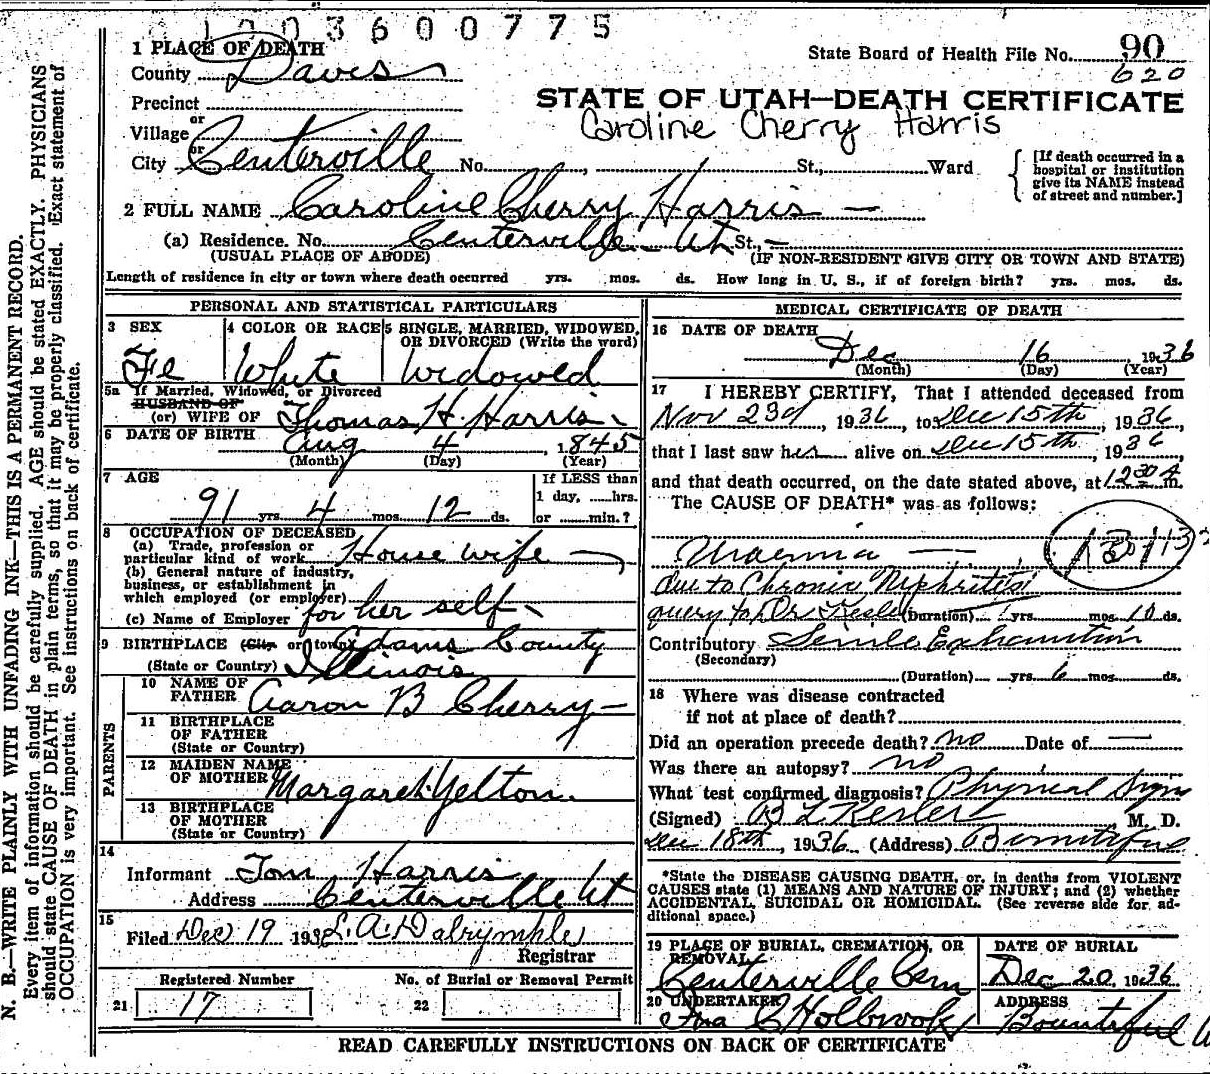 1003600775
1 PLACE OF DEATH
State Board of Health File No. 90
County Davis
620
Precinct
STATE OF UTAH—DEATH CERTIFICATE
or
Village
Caroline Cherry Harris
or
City Centerville No. , St., Ward
[If death occurred in a hospital or institution give its NAME instead of street and number.]
2 FULL NAME Caroline Cherry Harris —
(a) Residence. No. Centerville — Ut St., —
(USUAL PLACE OF ABODE) (IF NON-RESIDENT GIVE CITY OR TOWN AND STATE)
Length of residence in city or town where death occurred yrs. mos. ds. How long in U. S., if of foreign birth? yrs. mos. ds.
PERSONAL AND STATISTICAL PARTICULARS
3 SEX
Fe
4 COLOR OR RACE
White
5 SINGLE, MARRIED, WIDOWED, OR DIVORCED (Write the word)
Widowed
5a If Married, Widowed, or Divorced
HUSBAND OF
(or) WIFE OF Thomas H. Harris
6 DATE OF BIRTH Aug 4, 1845
(Month) (Day) (Year)
7 AGE
91 yrs. 4 mos. 12 ds.
If LESS than
1 day, hrs.
or min.?
8 OCCUPATION OF DECEASED
(a) Trade, profession or
particular kind of work House wife
(b) General nature of industry,
business, or establishment in
which employed (or employer)
(c) Name of Employer for her self
9 BIRTHPLACE (City or town) Adams County
(State or Country) Illinois
PARENTS
10 NAME OF
FATHER Aaron B Cherry —
11 BIRTHPLACE
OF FATHER
(State or Country)
12 MAIDEN NAME
OF MOTHER Margaret Yelton.
13 BIRTHPLACE
OF MOTHER
(State or Country)
14
Informant Tom Harris
Address Centerville Ut
15
Filed Dec 19 1936 L. A. Dalrymple
Registrar
Registered Number No. of Burial or Removal Permit
21 17 22
MEDICAL CERTIFICATE OF DEATH
16 DATE OF DEATH
Dec 16, 1936
(Month) (Day) (Year)
17 I HEREBY CERTIFY, That I attended deceased from
Nov 23d, 1936, to Dec 15th, 1936
that I last saw her alive on Dec 15th, 1936
and that death occurred, on the date stated above, at 12 30 A. m.
The CAUSE OF DEATH* was as follows:
Uraemia —
due to Chronic Nephritis
query to Dr Kesler (Duration) yrs. mos. 10 ds.
Contributory Senile Exhaustion
(Secondary)
(Duration) yrs. 6 mos. ds.
18 Where was disease contracted
if not at place of death?
Did an operation precede death? no Date of —
Was there an autopsy? no
What test confirmed diagnosis? Physical Sign
(Signed) B L Kesler, M. D.
Dec 18th, 1936 (Address) Bountiful
*State the DISEASE CAUSING DEATH, or, in deaths from VIOLENT
CAUSES state (1) MEANS AND NATURE OF INJURY; and (2) whether
ACCIDENTAL, SUICIDAL OR HOMICIDAL. (See reverse side for ad-
ditional space.)
19 PLACE OF BURIAL, CREMATION, OR
REMOVAL
Centerville Cem
DATE OF BURIAL
Dec 20, 1936
20 UNDERTAKER
Ira C Holbrook
ADDRESS
Bountiful
READ CAREFULLY INSTRUCTIONS ON BACK OF CERTIFICATE
N. B.—WRITE PLAINLY WITH UNFADING INK—THIS IS A PERMANENT RECORD.
Every item of information should be carefully supplied. AGE should be stated EXACTLY. PHYSICIANS
should state CAUSE OF DEATH in plain terms, so that it may be properly classified. Exact statement of
OCCUPATION is very important. See instructions on back of certificate.